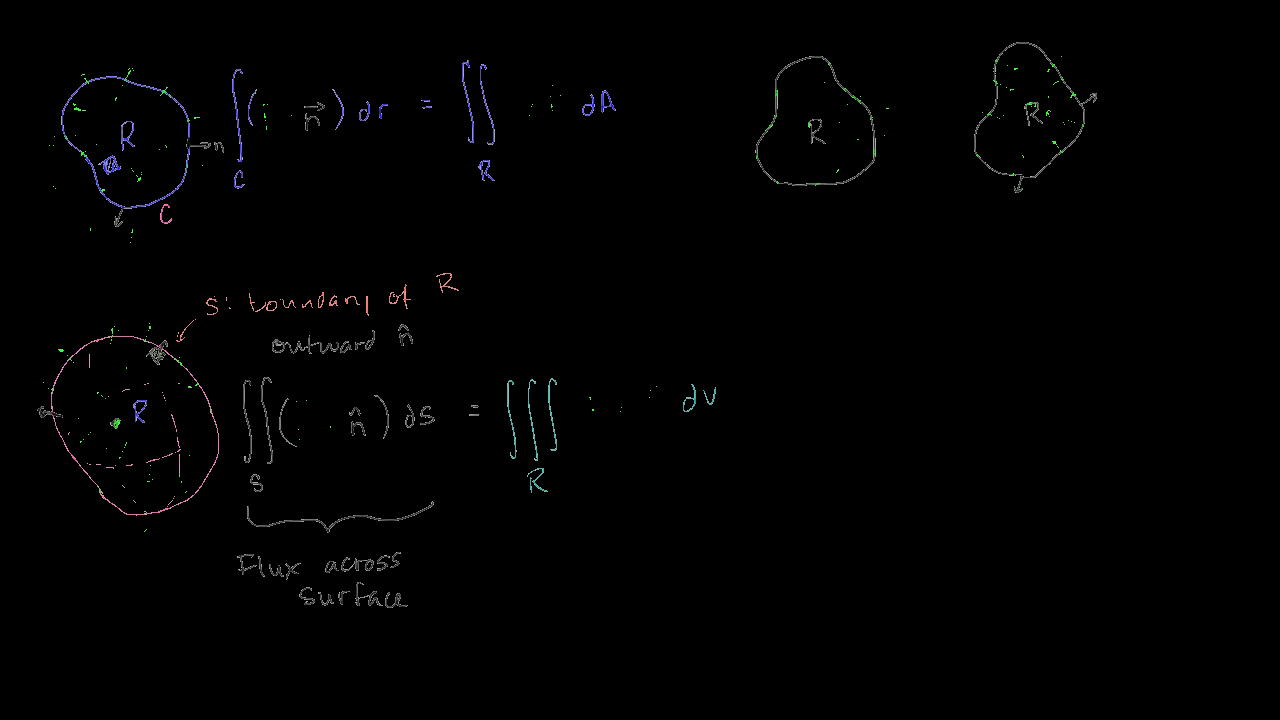 R
n
C
∫_C ( · n⃗ ) dr = ∬_R dA
R
R
S: boundary of R
outward n̂
R
∬_S ( · n̂ ) dS = ∭_R · dV
Flux across
surface